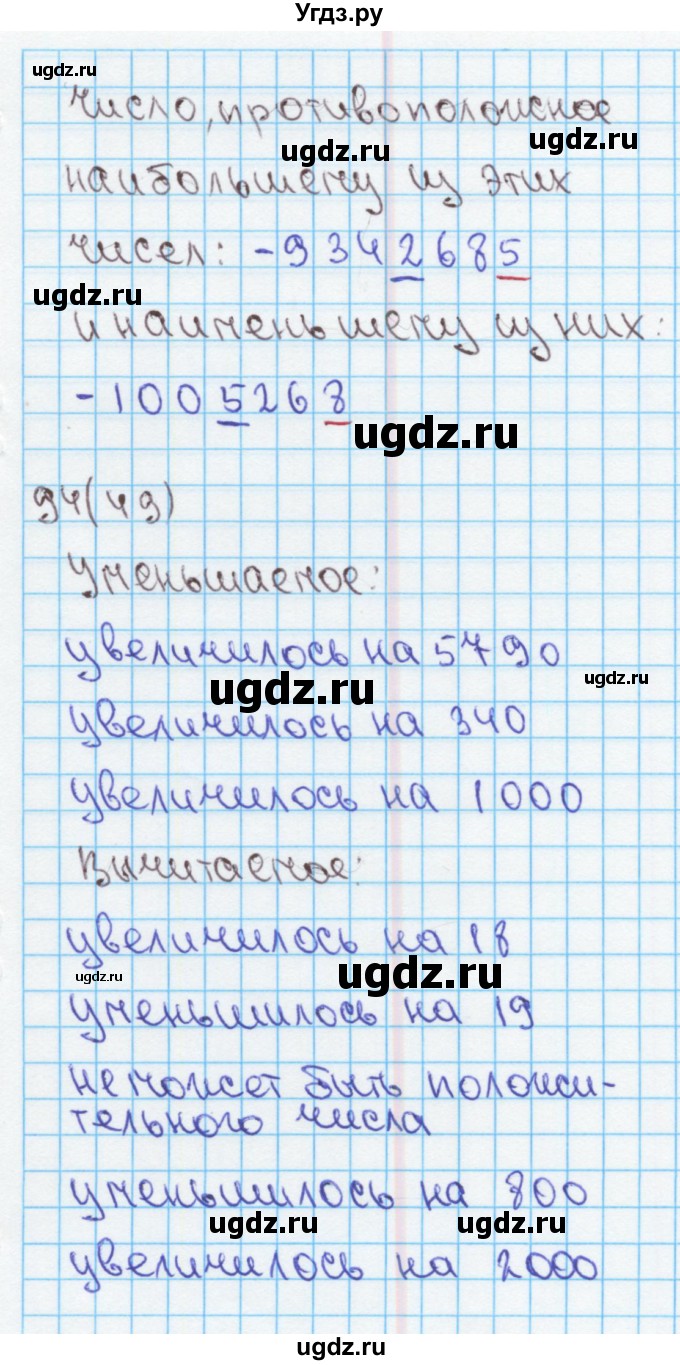 Угдз.ру
ugdz.ru
число, противоположное
ugdz.ru
ugdz.ru
наибольшему из этих
чисел: -9342685
ugdz.ru
и наименьшему из них:
-1005268
ugdz.ru
94(49)
Уменьшаемое:
увеличилось на 5790
ugdz.ru
ugdz.ru
увеличилось на 340
увеличилось на 1000
Вычитаемое:
увеличилось на 18
ugdz.ru
ugdz.ru
уменьшилось на 19
не может быть положи-
тельного числа
уменьшилось на 800
ugdz.ru
ugdz.ru
увеличилось на 2000
ugdz.ru